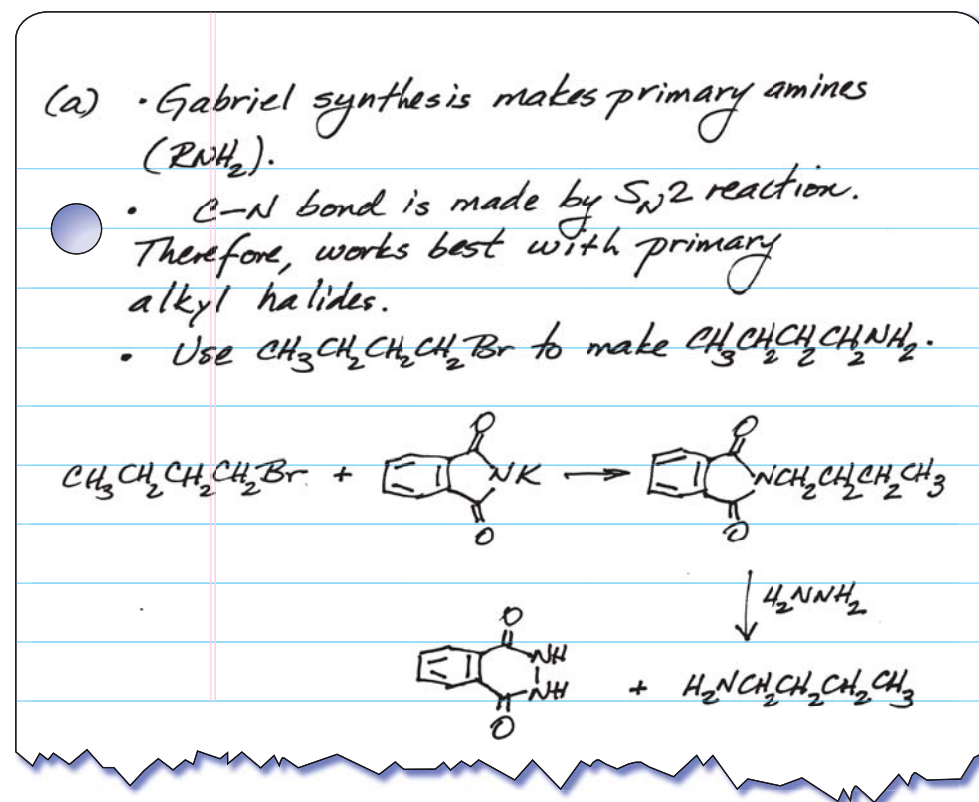 (a) · Gabriel synthesis makes primary amines
(RNH₂).
· C–N bond is made by SN2 reaction.
Therefore, works best with primary
alkyl halides.
· Use CH₃CH₂CH₂CH₂Br to make CH₃CH₂CH₂CH₂NH₂.
O O
CH₃CH₂CH₂CH₂Br + NK → NCH₂CH₂CH₂CH₃
O O
H₂NNH₂
O
NH
NH + H₂NCH₂CH₂CH₂CH₃
O